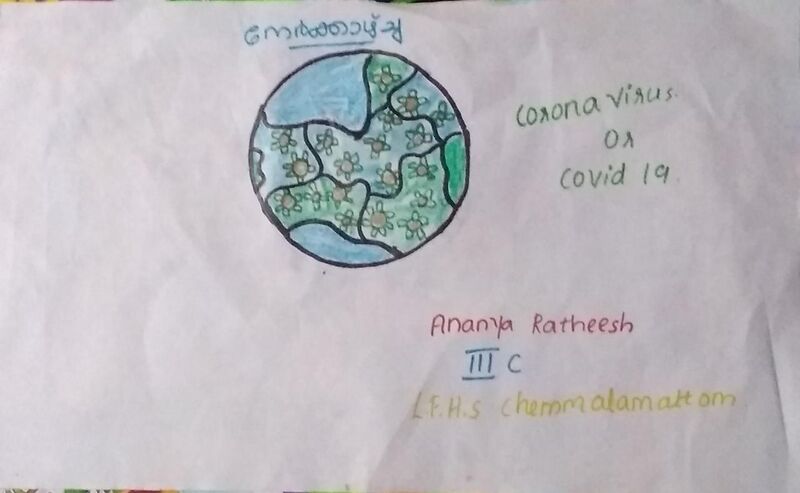 നേർക്കാഴ്ച്ച
corona virus
or
covid 19
Ananya Ratheesh
III C
L.F.H.S chemmalamattom